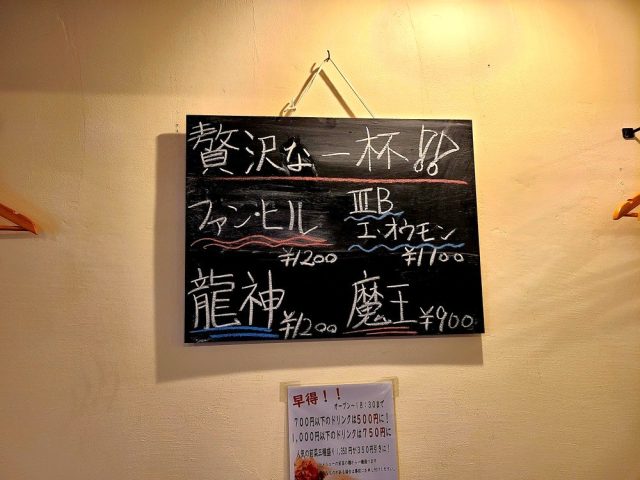 贅沢な一杯!!
ファン・ヒル
¥1200
ⅢB
エ・オウモン
¥1100
龍神 ¥1200
魔王 ¥900
早得!!
オープン〜18:30まで
700円以下のドリンクは500円に!
1,000円以下のドリンクは750円に
人気の前菜三種盛り1,350円が350円引きに!